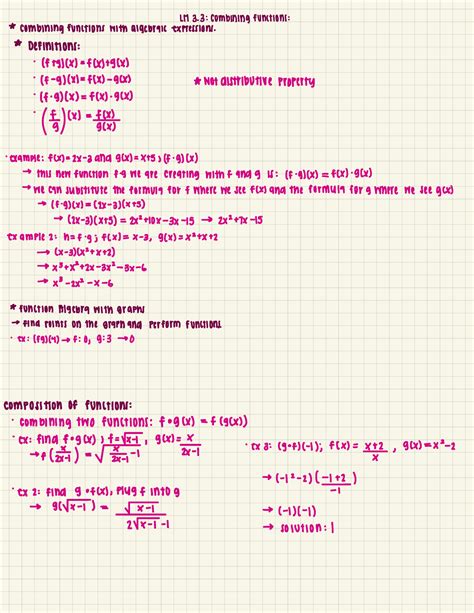 LM 3.3: Combining Functions:
* Combining functions with algebraic expressions.
* Definitions:
· (f+g)(x) = f(x)+g(x)
· (f-g)(x) = f(x)-g(x)
* Not distributive property
· (f·g)(x) = f(x)·g(x)
· (f/g)(x) = f(x)/g(x)
· Example: f(x)=2x-3 and g(x)=x+5; (f·g)(x)
→ this new function f·g we are creating with f and g is: (f·g)(x) = f(x)·g(x)
→ we can substitute the formula for f where we see f(x) and the formula for g where we see g(x)
→ (f·g)(x)=(2x-3)(x+5)
→ (2x-3)(x+5) = 2x²+10x-3x-15 → 2x²+7x-15
Example 2: h=f·g; f(x)=x-3, g(x)=x²+x+2
→ (x-3)(x²+x+2)
→ x³+x²+2x-3x²-3x-6
→ x³-2x²-x-6
* Function Algebra with graphs
→ find points on the graph and perform functions
· Ex: (fg)(4) → f:0, g:3 → 0
Composition of functions:
· Combining two functions: f∘g(x) = f(g(x))
· Ex: find f∘g(x); f=√x-1, g(x)=x/2x-1
→ f(x/2x-1) = √x/2x-1 -1
· Ex 2: find g∘f(x), Plug f into g
→ g(√x-1) = √x-1/2√x-1 -1
· Ex 3: (g∘f)(-1), f(x)=x+2/x, g(x)=x²-2
→ (-1²-2)(-1+2/-1)
→ (-1)(-1)
→ solution: 1